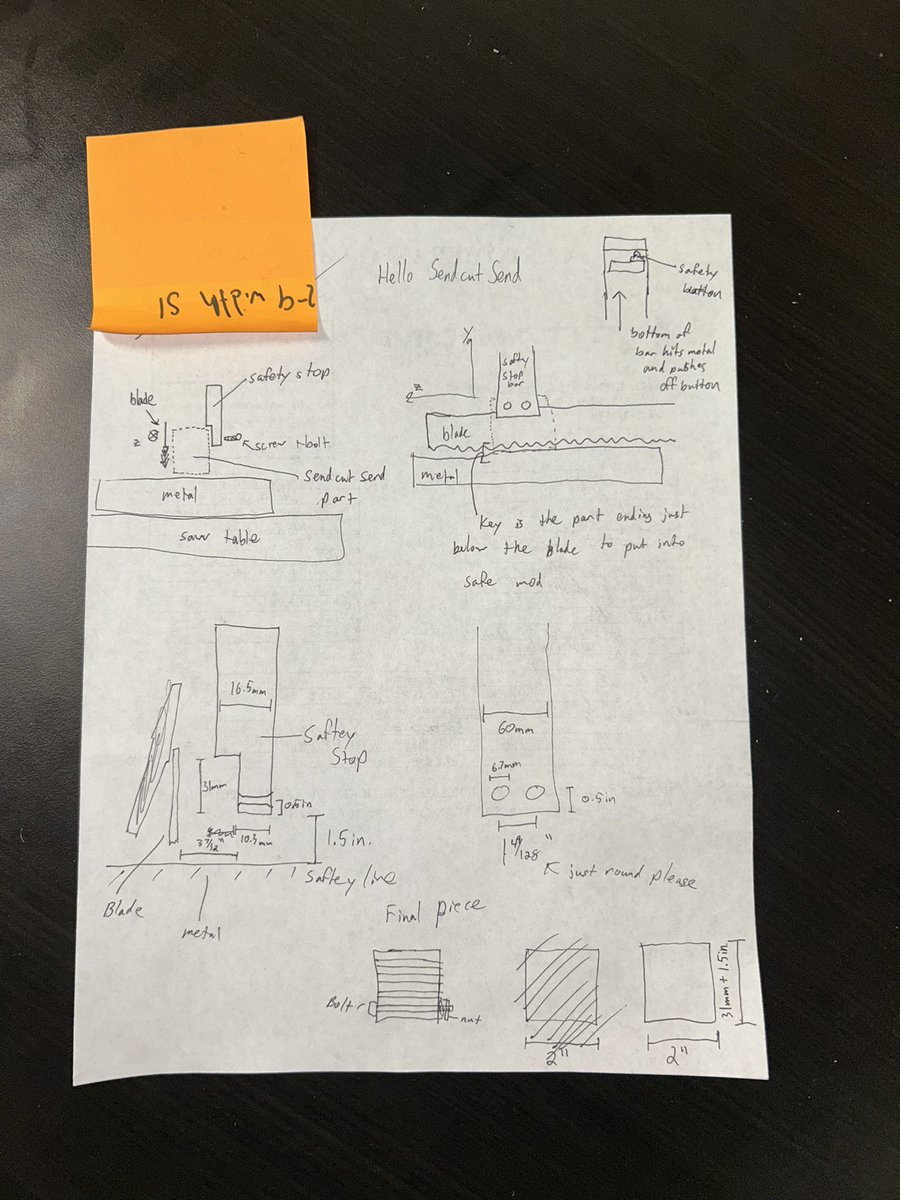 Hello Sendcut Send
safety
button
bottom of
bar hits metal
and pushes
off button
safety stop
blade
z
screw + bolt
Sendcut send
part
metal
saw table
Y
z
safty
stop
bar
blade
metal
Key is the part ending just
below the blade to put into
safe mod
16.5mm
Saftey
Stop
31mm
0.5in
10.3mm
3 7/32"
1.5in.
Saftey line
Blade
metal
60mm
6.7mm
0.5in
1 49/128"
just round please
Final piece
Bolt
nut
2"
2"
31mm + 1.5in.